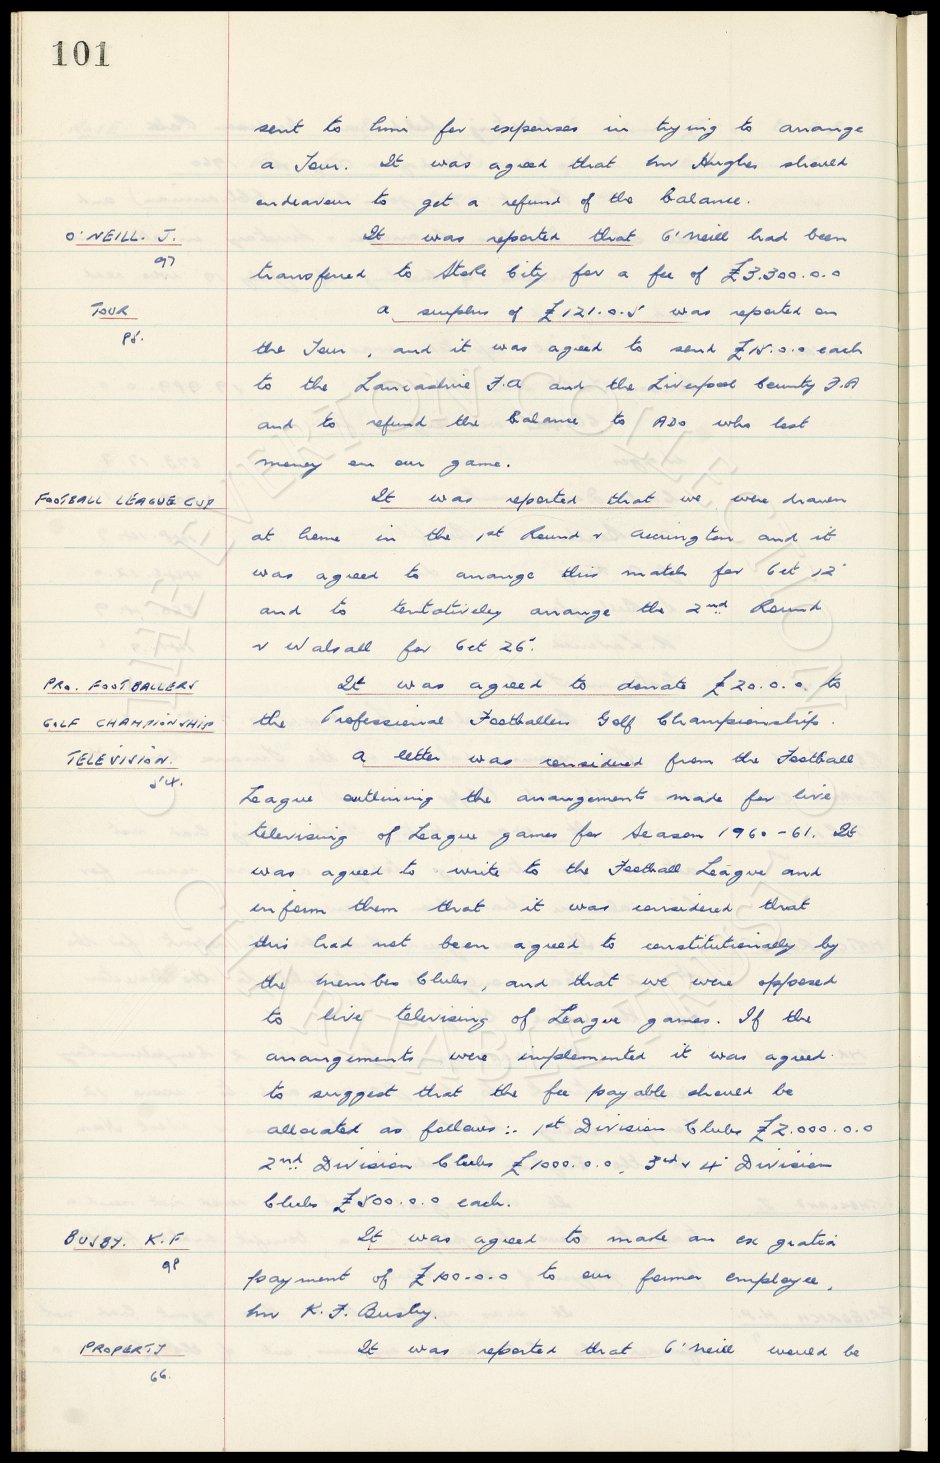 101
sent to him for expenses in trying to arrange
a Tour. It was agreed that Mr Hughes should
endeavour to get a refund of the balance.
O'NEILL. J. It was reported that O'Neill had been
97 transferred to Stoke City for a fee of £3.300.0.0
TOUR A surplus of £121.0.5 was reported on
98. the Tour, and it was agreed to send £15.0.0 each
to the Lancashire F.A and the Liverpool County F.A
and to refund the balance to ADO who lost
money on our game.
FOOTBALL LEAGUE CUP It was reported that we were drawn
at home in the 1st Round v Accrington and it
was agreed to arrange this match for Oct 12
and to tentatively arrange the 2nd Round
v Walsall for Oct 26.
PRO. FOOTBALLERS It was agreed to donate £20.0.0. to
GOLF CHAMPIONSHIP the Professional Footballers Golf Championship.
TELEVISION. A letter was considered from the Football
54. League outlining the arrangements made for live
televising of League games for Season 1960-61. It
was agreed to write to the Football League and
inform them that it was considered that
this had not been agreed to constitutionally by
the member Clubs, and that we were opposed
to live televising of League games. If the
arrangements were implemented it was agreed
to suggest that the fee payable should be
allocated as follows:. 1st Division Clubs £2.000.0.0
2nd Division Clubs £1000.0.0, 3rd & 4 Division
Clubs £500.0.0 each.
BUSBY. K.F It was agreed to made an ex gratia
98 payment of £100.0.0 to our former employee,
Mr K.F. Busby.
PROPERTY It was reported that O'Neill would be
66.